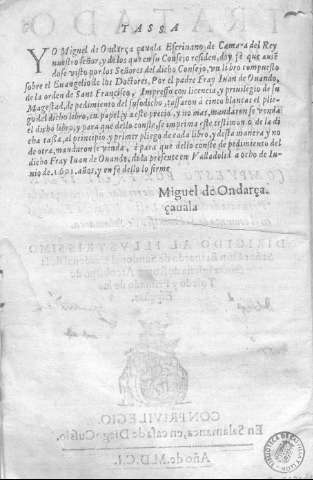 TASSA
YO Miguel de Ondarça çauala Escriuano de Camara del Rey
nuestro señor, y de los que en su Consejo residen, doy fè que auiẽ
dose visto por los Señores del dicho Consejo, vn libro compuesto
sobre el Euangelio de los Doctores, Por el padre Fray Iuan de Ouando,
de la orden de Sant Francisco, Impresso con licencia, y priuilegio de su
Magestad, de pedimiento del susodicho, tassaron a cinco blancas el plie-
go del dicho libro, en papel, y a este precio, y no mas, mandaron se venda
el dicho libro, y para que dello conste, se imprima este testimonio de la di
cha tassa, al principio, y primer pliego de cada libro, y desta manera y no
de otra, mandaron se venda, è para quê dello conste de pedimento del
dicho Fray Iuan de Ouando, di la presente en Valladolid a ocho de Iu-
nio de .1601. años, y en fè dello lo firmè.
Miguel de Ondarça.
çauala
DIRIGIDO AL ILLVSTRISSIMO
CON PRIVILEGIO.
En Salamanca, en casa de Diego Cussio.
Año de. M.D.C.I.